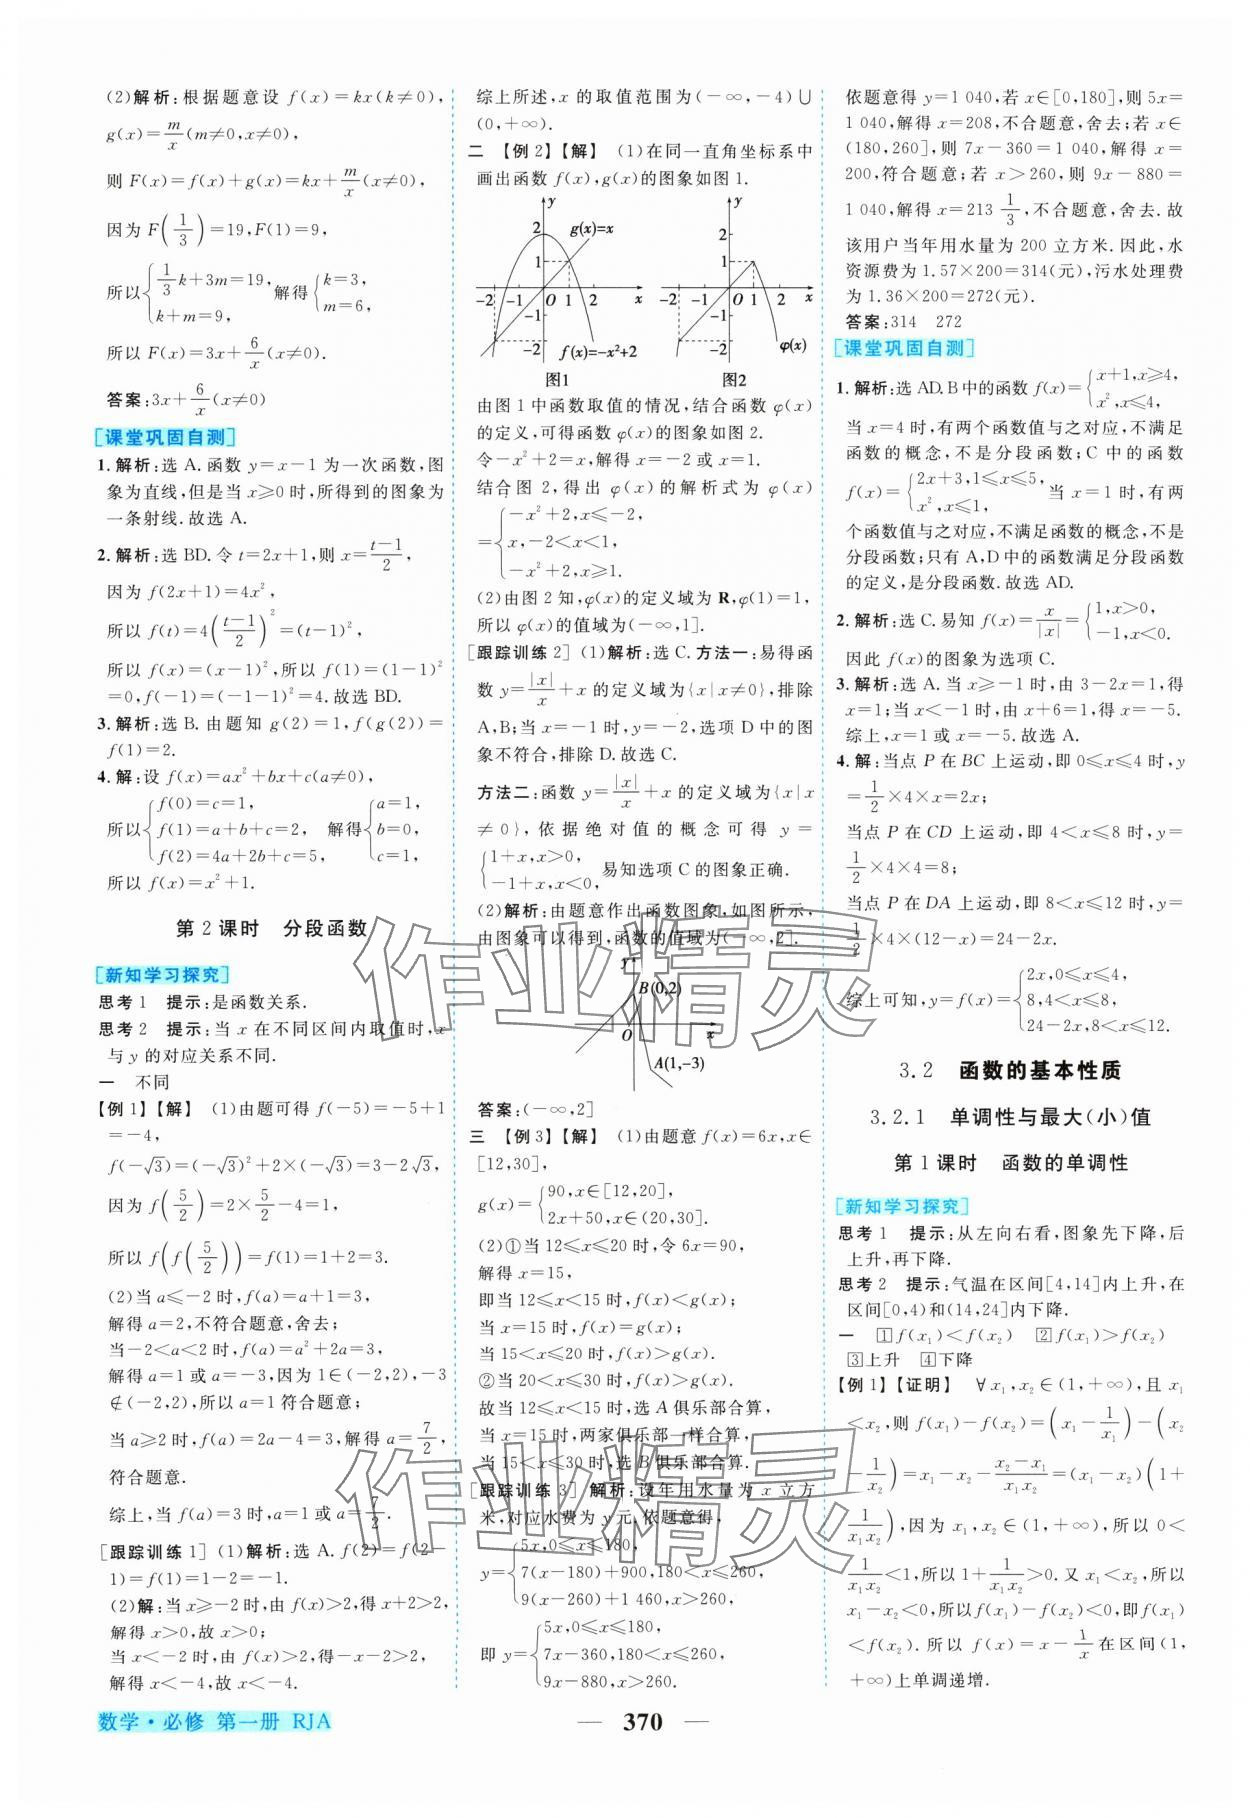 (2)解析:根据题意设 f(x)=kx(k≠0),
g(x)=m/x(m≠0,x≠0),
则 F(x)=f(x)+g(x)=kx+m/x(x≠0),
因为 F(1/3)=19,F(1)=9,
所以{1/3k+3m=19, k+m=9, 解得{k=3, m=6,
所以 F(x)=3x+6/x(x≠0).
答案:3x+6/x(x≠0)
[课堂巩固自测]
1.解析:选 A.函数 y=x-1 为一次函数,图
象为直线,但是当 x≥0 时,所得到的图象为
一条射线.故选 A.
2.解析:选 BD.令 t=2x+1,则 x=(t-1)/2,
因为 f(2x+1)=4x²,
所以 f(t)=4((t-1)/2)²=(t-1)²,
所以 f(x)=(x-1)²,所以 f(1)=(1-1)²
=0,f(-1)=(-1-1)²=4.故选 BD.
3.解析:选 B.由题知 g(2)=1,f(g(2))=
f(1)=2.
4.解:设 f(x)=ax²+bx+c(a≠0),
所以{f(0)=c=1, f(1)=a+b+c=2, f(2)=4a+2b+c=5, 解得{a=1, b=0, c=1,
所以 f(x)=x²+1.
第 2 课时 分段函数
[新知学习探究]
思考 1 提示:是函数关系.
思考 2 提示:当 x 在不同区间内取值时,x
与 y 的对应关系不同.
一 不同
【例 1】【解】 (1)由题可得 f(-5)=-5+1
=-4,
f(-√3)=(-√3)²+2×(-√3)=3-2√3.
因为 f(5/2)=2×5/2-4=1,
所以 f(f(5/2))=f(1)=1+2=3.
(2)当 a≤-2 时,f(a)=a+1=3,
解得 a=2,不符合题意,舍去;
当-2<a<2 时,f(a)=a²+2a=3,
解得 a=1 或 a=-3,因为 1∈(-2,2),-3
∉(-2,2),所以 a=1 符合题意;
当 a≥2 时,f(a)=2a-4=3,解得 a=7/2,
符合题意.
综上,当 f(a)=3 时,a=1 或 a=7/2.
[跟踪训练 1] (1)解析:选 A.f(2)=f(2-
1)=f(1)=1-2=-1.
(2)解:当 x≥-2 时,由 f(x)>2,得 x+2>2,
解得 x>0,故 x>0;
当 x<-2 时,由 f(x)>2,得-x-2>2,
解得 x<-4,故 x<-4.
综上所述,x 的取值范围为(-∞,-4)∪
(0,+∞).
二 【例 2】【解】 (1)在同一直角坐标系中
画出函数 f(x),g(x)的图象如图 1.
y 2 g(x)=x 1 -2 -1 O 1 2 x -1 -2 f(x)=-x²+2
图1
y 2 1 -2 -1 O 1 2 x -1 -2 φ(x)
图2
由图 1 中函数取值的情况,结合函数 φ(x)
的定义,可得函数 φ(x)的图象如图 2.
令-x²+2=x,解得 x=-2 或 x=1.
结合图 2,得出 φ(x)的解析式为 φ(x)
={-x²+2,x≤-2, x,-2<x<1, -x²+2,x≥1.
(2)由图 2 知,φ(x)的定义域为 R,φ(1)=1,
所以 φ(x)的值域为(-∞,1].
[跟踪训练 2] (1)解析:选 C.方法一:易得函
数 y=|x|/x+x 的定义域为{x|x≠0},排除
A,B;当 x=-1 时,y=-2,选项 D 中的图
象不符合,排除 D.故选 C.
方法二:函数 y=|x|/x+x 的定义域为{x|x
≠0},依据绝对值的概念可得 y=
{1+x,x>0, -1+x,x<0, 易知选项 C 的图象正确.
(2)解析:由题意作出函数图象,如图所示,
由图象可以得到,函数的值域为(-∞,2].
y B(0,2) O x A(1,-3)
答案:(-∞,2]
三 【例 3】【解】 (1)由题意 f(x)=6x,x∈
[12,30],
g(x)={90,x∈[12,20], 2x+50,x∈(20,30].
(2)①当 12≤x≤20 时,令 6x=90,
解得 x=15,
即当 12≤x<15 时,f(x)<g(x);
当 x=15 时,f(x)=g(x);
当 15<x≤20 时,f(x)>g(x).
②当 20<x≤30 时,f(x)>g(x).
故当 12≤x<15 时,选 A 俱乐部合算,
当 x=15 时,两家俱乐部一样合算,
当 15<x≤30 时,选 B 俱乐部合算.
[跟踪训练 3] 解析:设年用水量为 x 立方
米,对应水费为 y 元,依题意得,
y={5x,0≤x≤180, 7(x-180)+900,180<x≤260, 9(x-260)+1 460,x>260,
即 y={5x,0≤x≤180, 7x-360,180<x≤260, 9x-880,x>260.
依题意得 y=1 040,若 x∈[0,180],则 5x=
1 040,解得 x=208,不合题意,舍去;若 x∈
(180,260],则 7x-360=1 040,解得 x=
200,符合题意;若 x>260,则 9x-880=
1 040,解得 x=213 1/3,不合题意,舍去.故
该用户当年用水量为 200 立方米.因此,水
资源费为 1.57×200=314(元),污水处理费
为 1.36×200=272(元).
答案:314 272
[课堂巩固自测]
1.解析:选 AD.B 中的函数 f(x)={x+1,x≥4, x²,x≤4,
当 x=4 时,有两个函数值与之对应,不满足
函数的概念,不是分段函数;C 中的函数
f(x)={2x+3,1≤x≤5, x²,x≤1, 当 x=1 时,有两
个函数值与之对应,不满足函数的概念,不是
分段函数;只有 A,D 中的函数满足分段函数
的定义,是分段函数.故选 AD.
2.解析:选 C.易知 f(x)=x/|x|={1,x>0, -1,x<0.
因此 f(x)的图象为选项 C.
3.解析:选 A.当 x≥-1 时,由 3-2x=1,得
x=1;当 x<-1 时,由 x+6=1,得 x=-5.
综上,x=1 或 x=-5.故选 A.
4.解:当点 P 在 BC 上运动,即 0≤x≤4 时,y
=1/2×4×x=2x;
当点 P 在 CD 上运动,即 4<x≤8 时,y=
1/2×4×4=8;
当点 P 在 DA 上运动,即 8<x≤12 时,y=
1/2×4×(12-x)=24-2x.
综上可知,y=f(x)={2x,0≤x≤4, 8,4<x≤8, 24-2x,8<x≤12.
3.2 函数的基本性质
3.2.1 单调性与最大(小)值
第 1 课时 函数的单调性
[新知学习探究]
思考 1 提示:从左向右看,图象先下降,后
上升,再下降.
思考 2 提示:气温在区间[4,14]内上升,在
区间[0,4)和(14,24]内下降.
一 1f(x₁)<f(x₂) 2f(x₁)>f(x₂)
3上升 4下降
【例 1】【证明】 ∀x₁,x₂∈(1,+∞),且 x₁
<x₂,则 f(x₁)-f(x₂)=(x₁-1/x₁)-(x₂
-1/x₂)=x₁-x₂-(x₂-x₁)/(x₁x₂)=(x₁-x₂)(1+
1/(x₁x₂)),因为 x₁,x₂∈(1,+∞),所以 0<
1/(x₁x₂)<1,所以 1+1/(x₁x₂)>0.又 x₁<x₂,所以
x₁-x₂<0,所以 f(x₁)-f(x₂)<0,即f(x₁)
<f(x₂).所以 f(x)=x-1/x 在区间(1,
+∞)上单调递增.
数学·必修 第一册 RJA
— 370 —
作业精灵
作业精灵